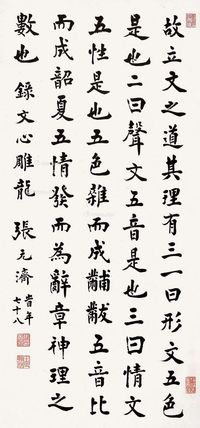 故立文之道其理有三一曰形文五色
是也二曰聲文五音是也三曰情文
五性是也五色雜而成黼黻五音比
而成韶夏五情發而為辭章神理之
數也 錄文心雕龍 張元濟 時年七十八